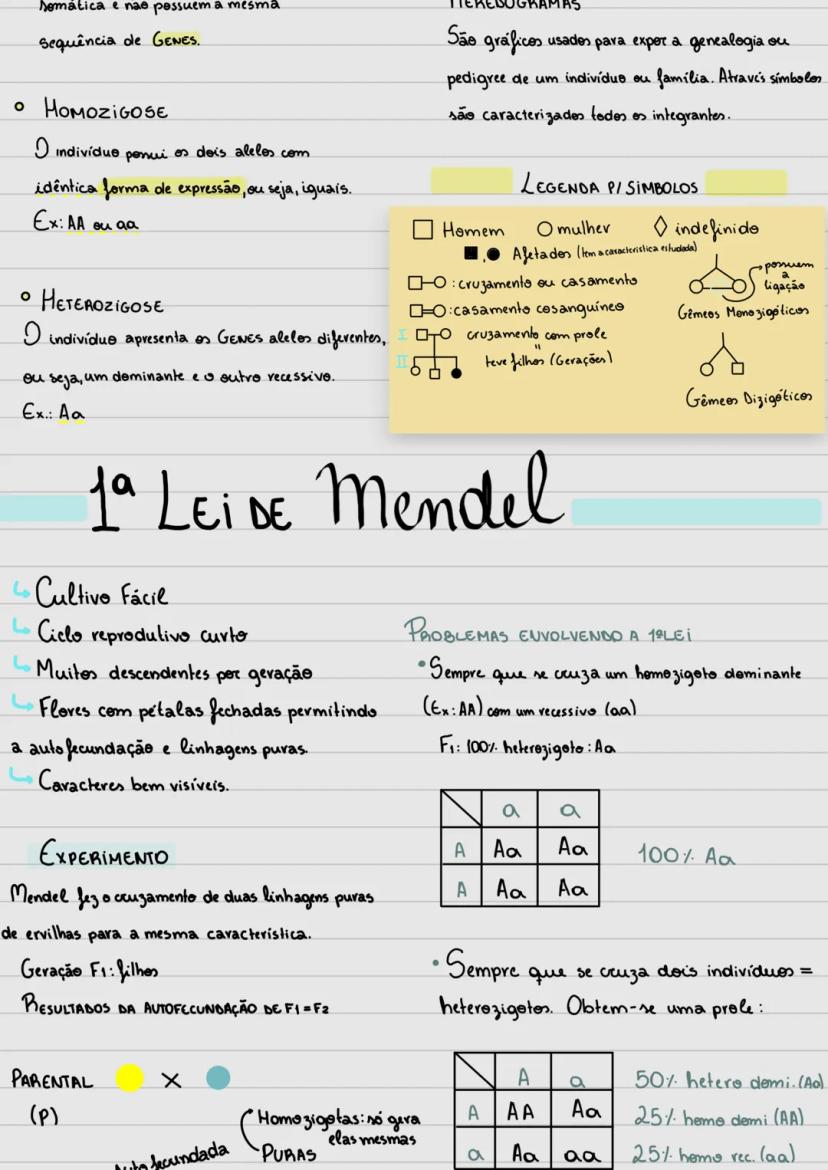 Somática e não possuem a mesma
sequência de GENES.
HOMOZIGOSE
O indivíduo possui os dois alelos com
idêntica forma de expressão, ou seja, iguais.
Ex: AA ou aa
HETEROZIGOSE
O indivíduo apresenta os GENES alelos diferentes,
ou seja, um dominante e o outro recessivo.
Ex.: Aa
HEREDOGRAMAS
São gráficos usados para expor a genealogia ou
pedigree de um indivíduo ou família. Através símbolos
são caracterizados todos os integrantes.
LEGENDA P/ SÍMBOLOS
Homem mulher indefinido
Afetados (tem a característica estudada)
: cruzamento ou casamento
: casamento cosanguíneo
I cruzamento com prole
"
II teve filhos (Gerações)
possuem
a
ligação
Gêmeos Monozigóticos
Gêmeos Dizigóticos
1ª LEI DE Mendel
Cultivo Fácil
Ciclo reprodutivo curto
Muitos descendentes por geração
Flores com pétalas fechadas permitindo
a autofecundação e linhagens puras.
Caracteres bem visíveis.
EXPERIMENTO
Mendel fez o cruzamento de duas linhagens puras
de ervilhas para a mesma característica.
Geração F1: filhos
RESULTADOS DA AUTOFECUNDAÇÃO DE F1 = F2
PARENTAL X
(P)
Homozigotas: só gera
elas mesmas
PURAS
Autofecundada
PROBLEMAS ENVOLVENDO A 1ª LEI
• Sempre que se cruza um homozigoto dominante
(Ex: AA) com um recessivo (aa)
F1: 100% heterozigoto: Aa
a a
A Aa Aa
A Aa Aa
100% Aa
• Sempre que se cruza dois indivíduos =
heterozigotos. Obtem-se uma prole:
A a
A AA Aa
a Aa aa
50% hetero domi. (Aa)
25% homo domi (AA)
25% homo rec. (aa)